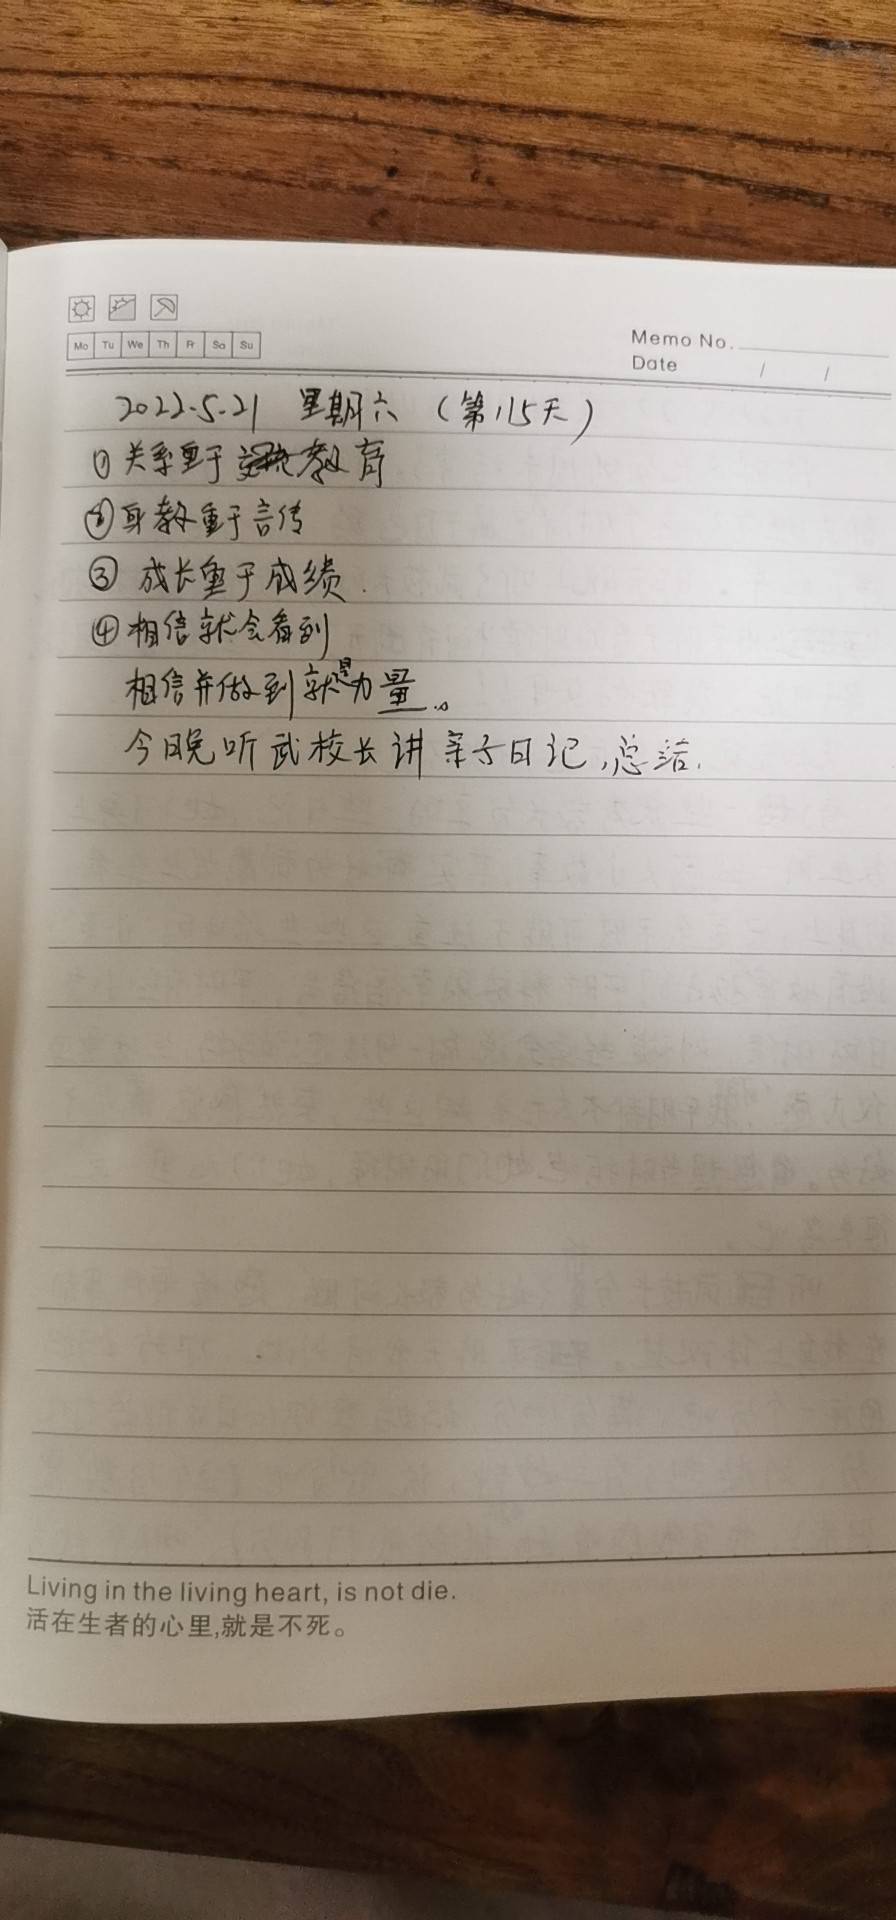 Mo Tu We Th Fr Sa Su
Memo No.
Date / /
2022.5.21 星期六 (第115天)
① 关系重于教育
② 身教重于言传
③ 成长重于成绩.
④ 相信就会看到
相信并做到就是力量。
今日晚听武校长讲亲子日记,总结.
Living in the living heart, is not die.
活在生者的心里,就是不死。